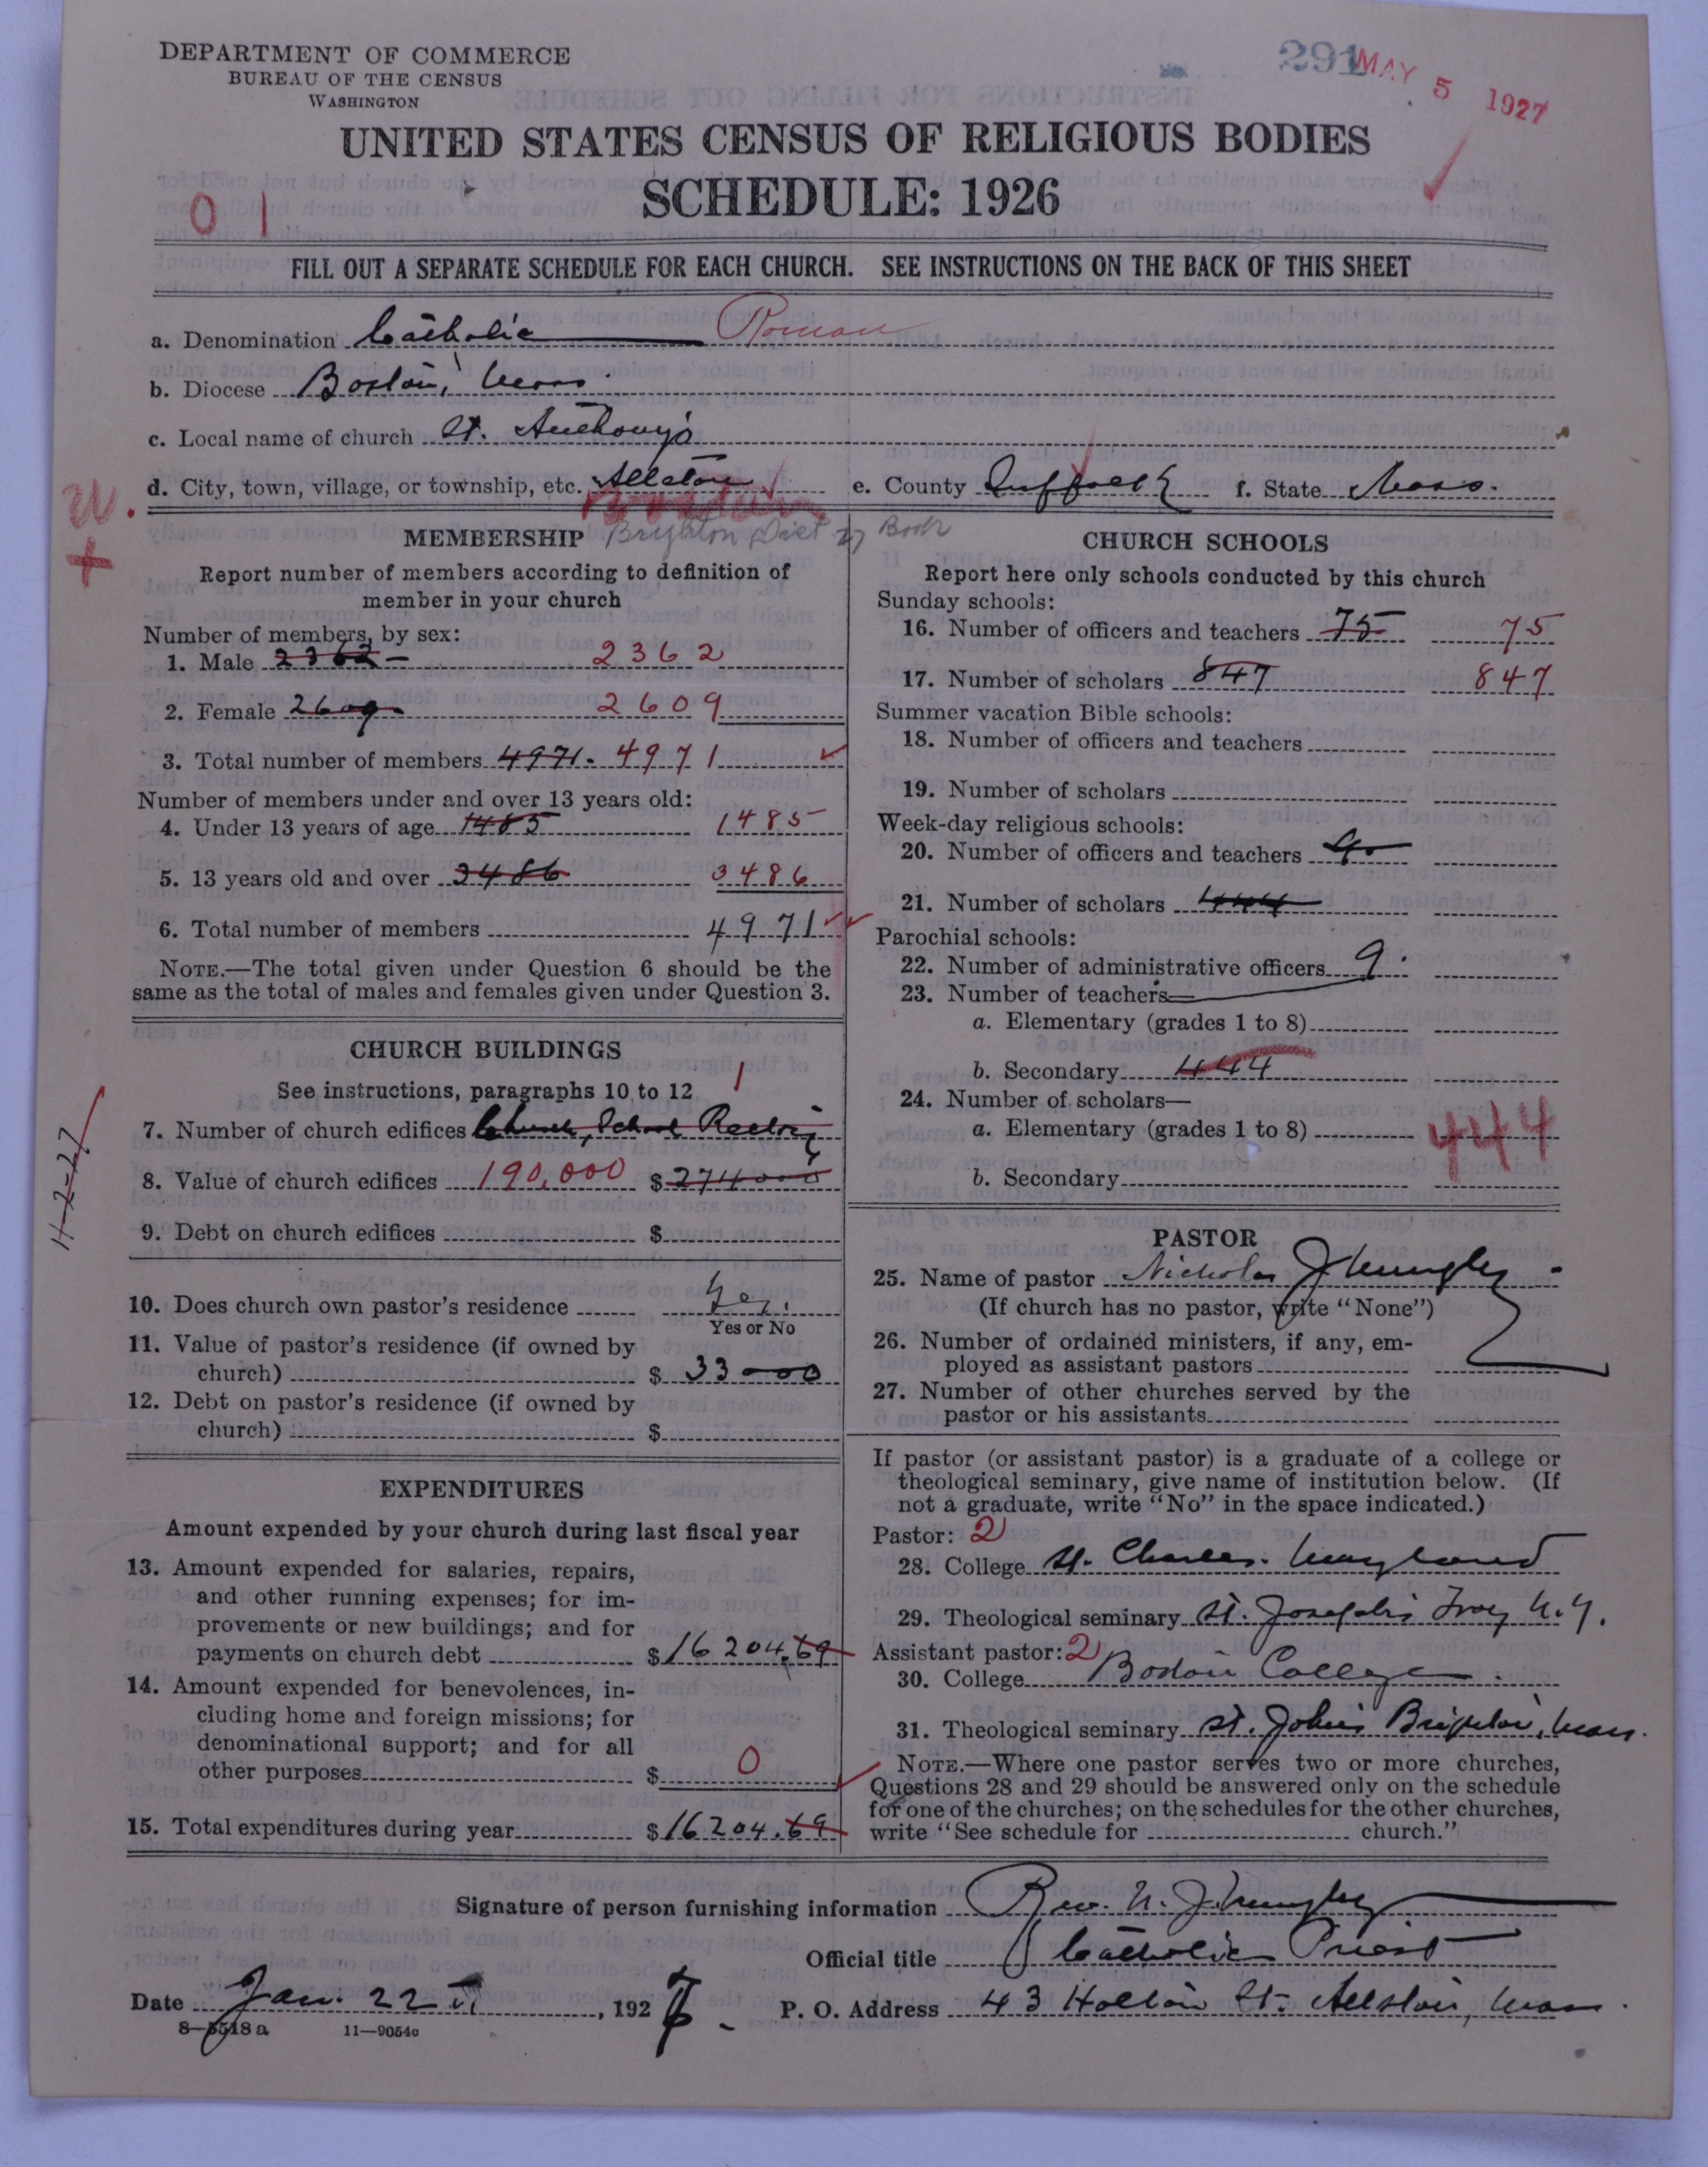 DEPARTMENT OF COMMERCE
BUREAU OF THE CENSUS
WASHINGTON
291 MAY 5 1927
UNITED STATES CENSUS OF RELIGIOUS BODIES
SCHEDULE: 1926
0 1
FILL OUT A SEPARATE SCHEDULE FOR EACH CHURCH. SEE INSTRUCTIONS ON THE BACK OF THIS SHEET
a. Denomination Catholic Roman
b. Diocese Boston, Mass.
c. Local name of church St. Anthony's
d. City, town, village, or township, etc. Allston e. County Suffolk f. State Mass.
Boston
Brighton Dist of Bost
MEMBERSHIP
Report number of members according to definition of
member in your church
Number of members, by sex:
1. Male 2362 2362
2. Female 2609 2609
3. Total number of members 4971. 4971
Number of members under and over 13 years old:
4. Under 13 years of age 1485 1485
5. 13 years old and over 3486 3486
6. Total number of members 4971
NOTE.—The total given under Question 6 should be the
same as the total of males and females given under Question 3.
CHURCH BUILDINGS
See instructions, paragraphs 10 to 12 1
7. Number of church edifices Church, School Rectory
8. Value of church edifices 190,000 $ 274000
9. Debt on church edifices $
10. Does church own pastor's residence Yes.
Yes or No
11. Value of pastor's residence (if owned by
church) $ 33000
12. Debt on pastor's residence (if owned by
church) $
11-2-27
EXPENDITURES
Amount expended by your church during last fiscal year
13. Amount expended for salaries, repairs,
and other running expenses; for im-
provements or new buildings; and for
payments on church debt $ 16204.69
14. Amount expended for benevolences, in-
cluding home and foreign missions; for
denominational support; and for all
other purposes $ 0
15. Total expenditures during year $ 16204.69
CHURCH SCHOOLS
Report here only schools conducted by this church
Sunday schools:
16. Number of officers and teachers 75 75
17. Number of scholars 847 847
Summer vacation Bible schools:
18. Number of officers and teachers
19. Number of scholars
Week-day religious schools:
20. Number of officers and teachers 9
21. Number of scholars 444
Parochial schools:
22. Number of administrative officers 9.
23. Number of teachers—
a. Elementary (grades 1 to 8)
b. Secondary 444
24. Number of scholars—
a. Elementary (grades 1 to 8) 444
b. Secondary
PASTOR
25. Name of pastor Nicholas J
(If church has no pastor, write "None")
26. Number of ordained ministers, if any, em-
ployed as assistant pastors
27. Number of other churches served by the
pastor or his assistants
If pastor (or assistant pastor) is a graduate of a college or
theological seminary, give name of institution below. (If
not a graduate, write "No" in the space indicated.)
Pastor: 2
28. College St. Charles. Maryland
29. Theological seminary St. Joseph's Troy N.Y.
Assistant pastor: 2
30. College Boston College.
31. Theological seminary St. John's Brighton, Mass.
NOTE.—Where one pastor serves two or more churches,
Questions 28 and 29 should be answered only on the schedule
for one of the churches; on the schedules for the other churches,
write "See schedule for church."
Signature of person furnishing information Rev. N. J.
Official title Catholic Priest
Date Jan. 22, 1927. P. O. Address 43 Holton St. Allston, Mass.
8-5518 a 11-9054c